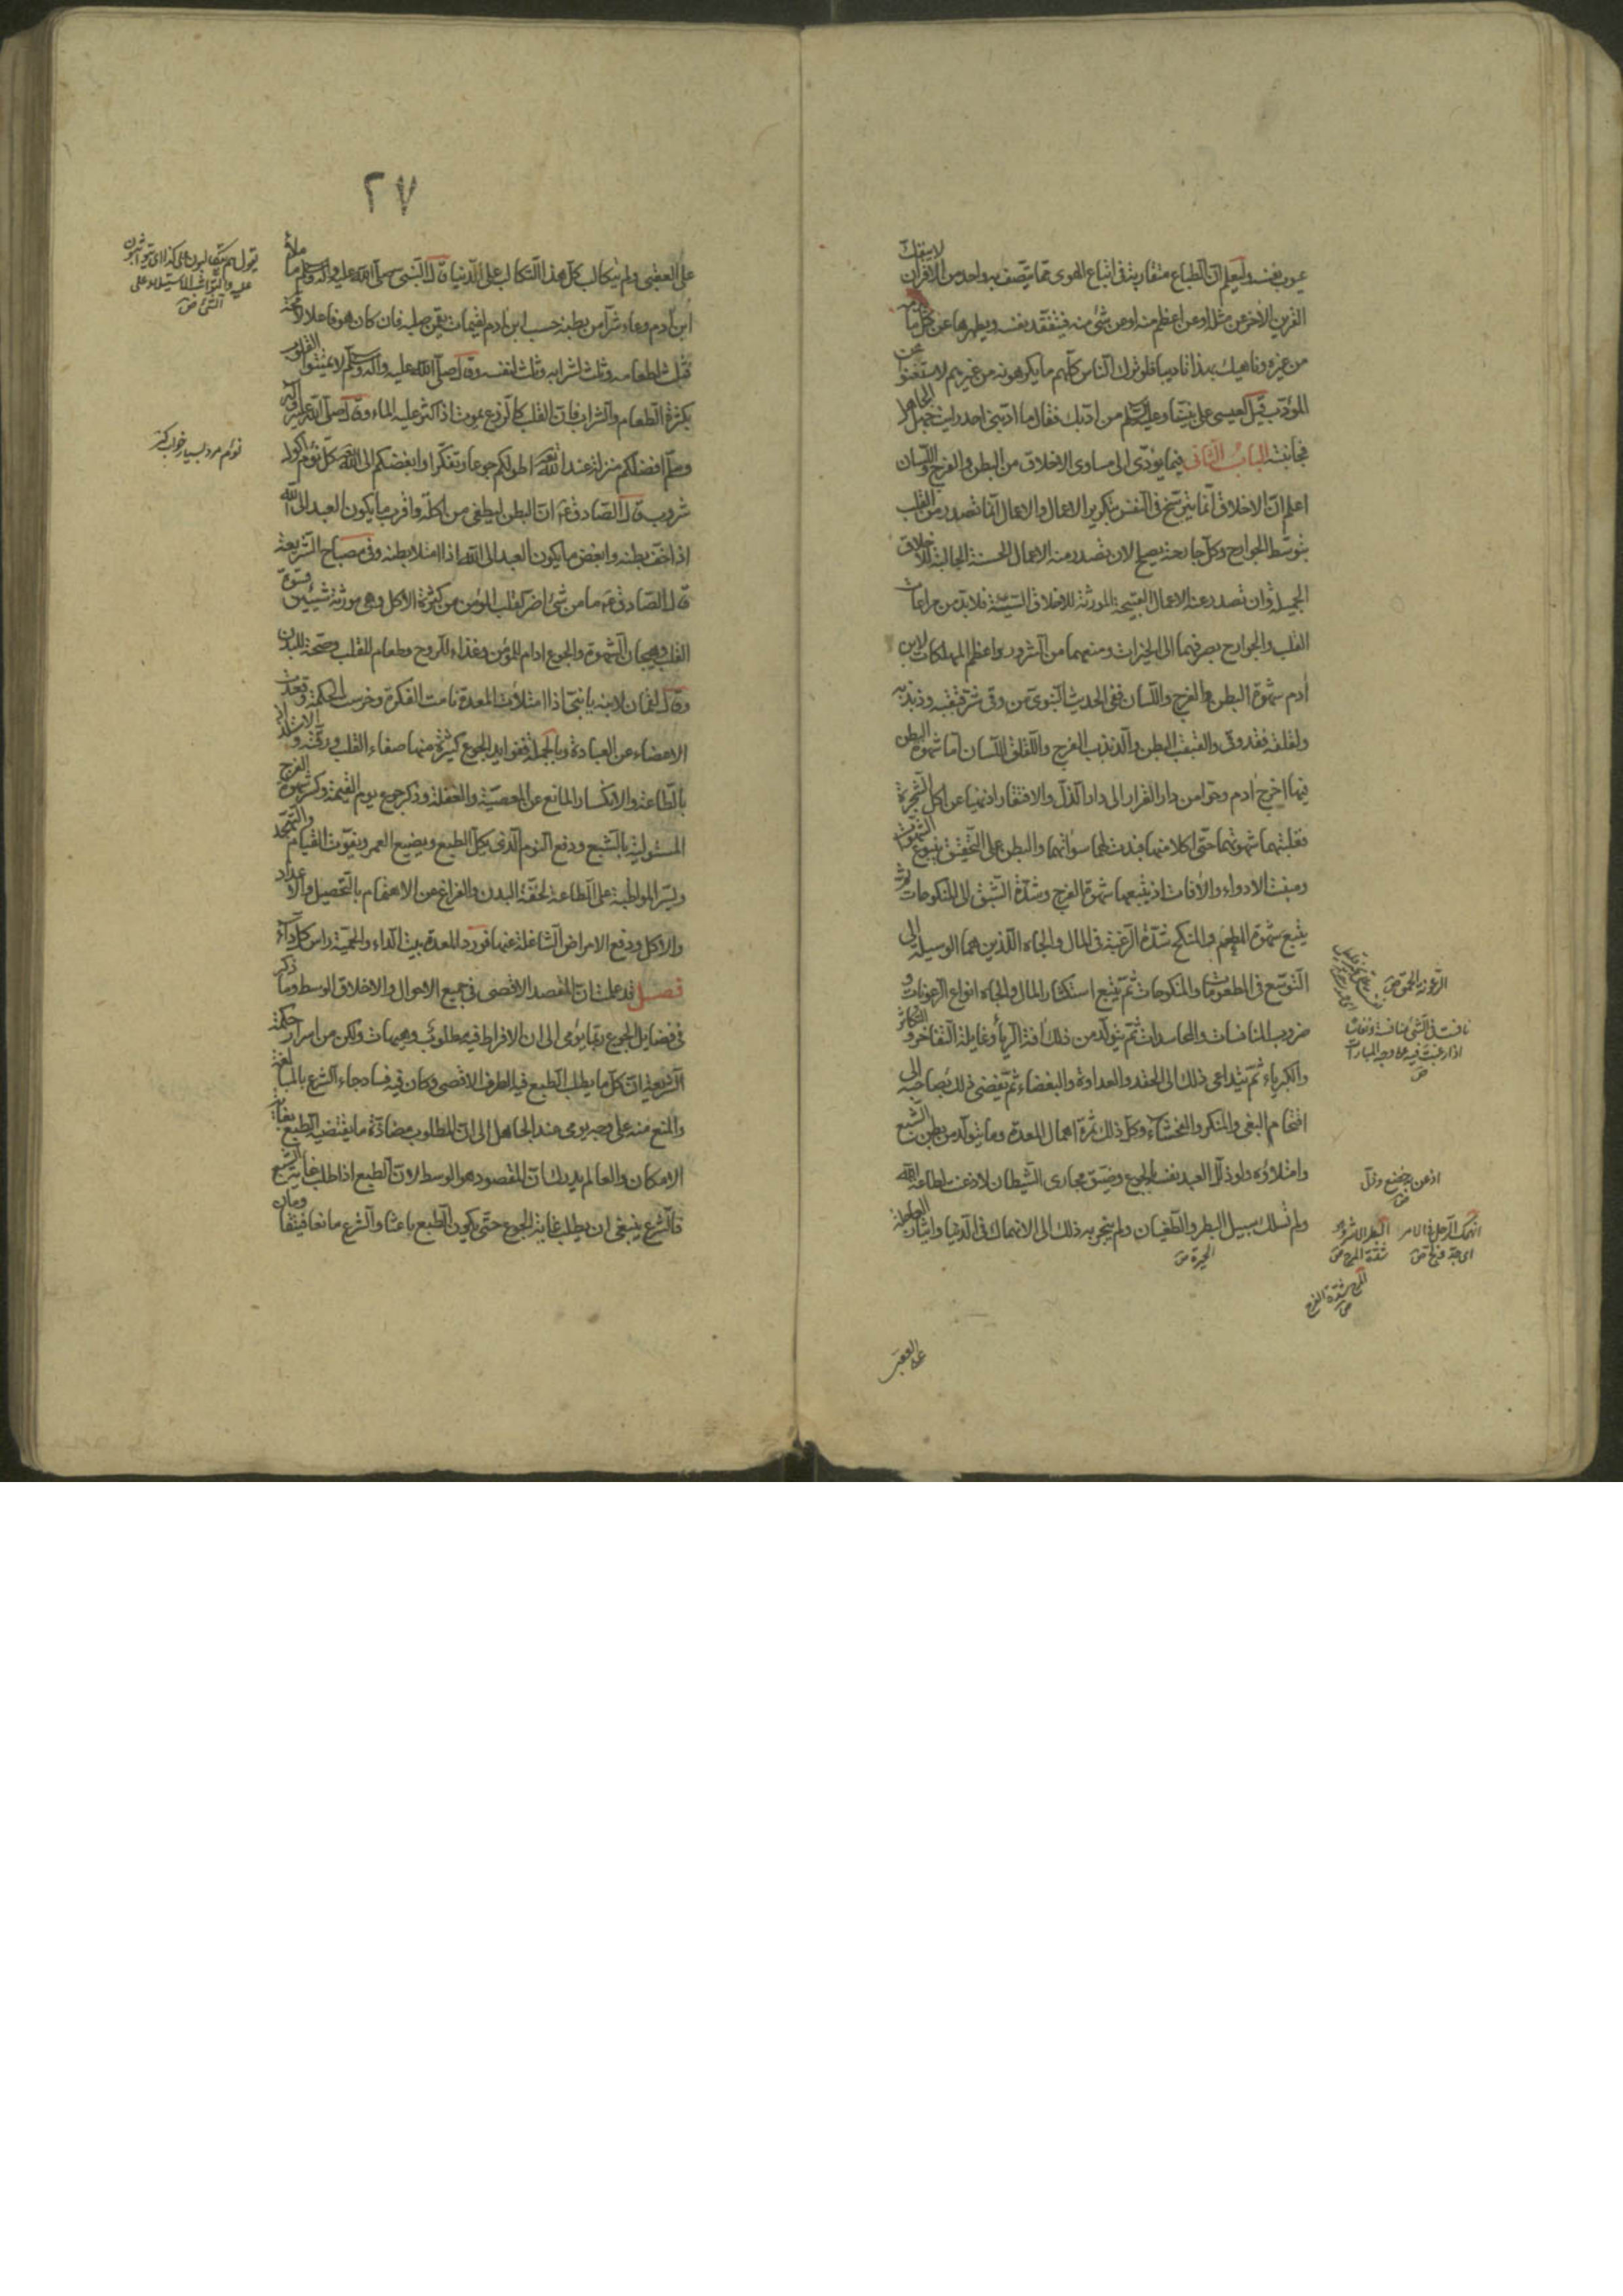 عيوب نفسه وليعلم ان الطباع متقاربة في اتباع الهوى فما يتصف به واحد من الاقران لا ينفك
القرين الآخر عن مثله او عن اعظم منه او عن شئ منه فيتفقد نفسه ويطهرها عن كل ما يذمه
من غيره وناهيك بهذا تاديبا فلو ترك الناس كلهم ما يكرهونه من غيرهم لاستغنوا عن
المؤدب قيل لعيسى على نبينا وعليه السلم من ادبك فقال ما ادبني احد رايت جهل الجاهل
فجانبته الباب الثاني فيما يؤدى الى مساوى الاخلاق من البطن والفرج واللسان
اعلم ان الاخلاق انما يترسخ في النفس بتكرير الاعمال والاعمال انما تصدر من القلب
بتوسط الجوارح وكل جارحة يصلح لان تصدر منه الاعمال الحسنة الجالبة للاخلاق
الجميلة وان تصدر عنه الاعمال القبيحة المورثة للاخلاق السيئة فلا بد من مراعات
القلب والجوارح بصرفهما الى الخيرات ومنعهما من الشرور واعظم المهلكات لابن
آدم شهوة البطن والفرج واللسان ففي الحديث النبوى من وقى شر قبقبه وذبذبه
ولقلقه فقد وقى والقبقب البطن والذبذب الفرج واللقلق اللسان اما شهوة البطن
فبها اخرج آدم وحوا من دار القرار الى دار الذل والافتقار اذ نهيا عن اكل الشجرة
فغلبتهما شهوتهما حتى اكلا منها فبدت لهما سوآتهما والبطن على التحقيق ينبوع الشهوات
ومنبت الادواء والآفات اذ يتبعها شهوة الفرج وشدة الشبق الى المنكوحات ثم
يتبع شهوة المطعم والمنكح شدة الرغبة في المال والجاه اللذين هما الوسيلة الى
التوسع في المطعومات والمنكوحات ثم يتبع استكثار المال والجاه انواع الرعونات و
ضروب المنافسات والمحاسدات ثم يتولد من ذلك آفة الرياء وغايلة التفاخر والتكاثر
والكبرياء ثم يتداعى ذلك الى الحقد والعداوة والبغضاء ثم يفضى ذلك بصاحبه الى
اقتحام البغى والمنكر والفحشاء وكل ذلك ثمرة اهمال المعدة وما يتولد من بطن الشبع
وامتلاؤه ولو ذلل العبد نفسه بالجوع وضيق مجارى الشيطان لاذعنت لطاعة الله
ولم تسلك سبيل البطر والطغيان ولم ينجر به ذلك الى الانهماك في الدنيا وايثار العاجلة
الرعونة الحمق ص
نافست في الشئ منافسة ونفاسا
اذا رغبت فيه على وجه المباراة
ص
اذعن اى خضع وذل
ص
انهمك الرجل في الامر
اى جد ولج ص
البطر الاشر وهو
شدة المرح ص
المرح شدة الفرح
ص
على العقبى
٢٧
على العقبى ولم يتكالب كل هذا التكالب على الدنيا قال النبى صلى الله عليه وآله وسلم ما ملأ
ابن آدم وعاء شرا من بطنه حسب ابن ادم لقيمات يقمن صلبه فان كان هو فاعلا لا محة
فثلث لطعامه وثلث لشرابه وثلث لنفسه وقال صلى الله عليه وآله وسلم لا تميتوا القلوب
بكثرة الطعام والشراب فان القلب كالزرع يموت اذا كثر عليه الماء وقال صلى الله عليه وآله
وسلم افضلكم منزلة عند الله تعالى اطولكم جوعا وتفكرا وابغضكم الى الله تعالى كل نؤم اكول
شروب قال الصادق ع ان البطن ليطغى من اكله واقرب ما يكون العبد الى الله
اذا خف بطنه وابغض ما يكون العبد الى الله اذا امتلا بطنه وفي مصباح الشريعة
قال الصادق ع ما من شئ اضر لقلب المؤمن من كثرة الاكل وهى مورثة شيئين قسوة
القلب وهيجان الشهوة والجوع ادام للمؤمن وغذاء للروح وطعام للقلب وصحة للبدن
وقال لقمان لابنه يا بنى اذا امتلأت المعدة نامت الفكرة وخرست الحكمة وقعدت
الاعضاء عن العبادة وبالجملة ففوايد الجوع كثيرة منها صفاء القلب ورقته والالتذاذ
بالطاعة والانكسار المانع عن المعصية والغفلة وذكر جوع يوم القيمة وكسر شهوة الفرج
المستولية بالشبع ودفع النوم الذى يكل الطبع ويضيع العمر ويفوت القيام والتهجد
ويسر المواظبة على الطاعة لخفة البدن والفراغ عن الاهتمام بالتحصيل والاعداد
والاكل ودفع الامراض الشاغلة عنها فورد المعدة بيت الداء والحمية راس كل دواء
فصل قد علمت ان المقصد الاقصى في جميع الاحوال والاخلاق الوسط وما ذكر
في فضايل الجوع ربما يؤمى الى ان الافراط فيه مطلوب وهيهات ولكن من اسرار حكمة
الشريعة ان كل ما يطلب الطبع فيه الطرف الاقصى وكان فيه فساد جاء الشرع بالمبالغة
والمنع منه على وجه يومى عند الجاهل الى ان المطلوب مضادة ما يقتضيه الطبع بغاية
الامكان والعالم يدرك ان المقصود هو الوسط لان الطبع اذا طلب غاية الشبع
فالشرع ينبغى ان يطلب غاية الجوع حتى يكون الطبع باعثا والشرع مانعا فيتقاومان
يقول هم يتكالبون على كذا اى يتواثبون
عليه والتواثب الاستيلاء على
الشئ ص
نوم مرد بسيار خواب كننده